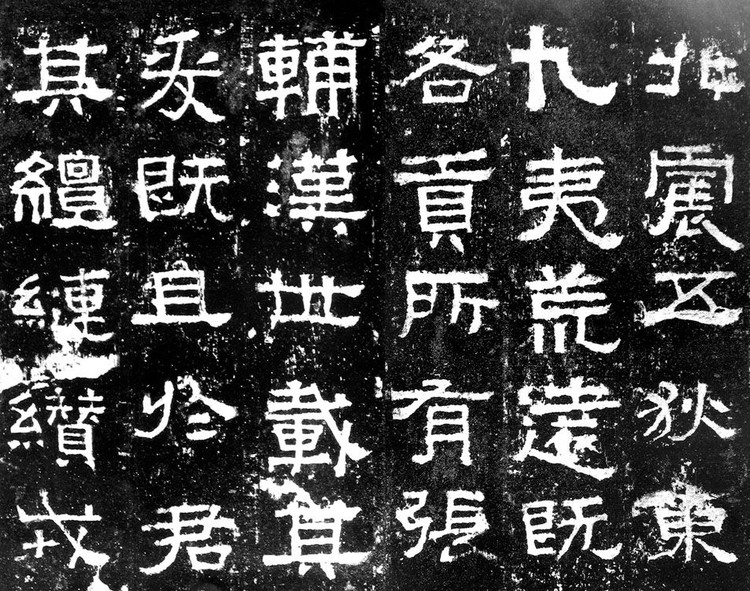 北震五狄東
九夷荒遠既
各貢所有張
輔漢世載其
爰既且於君
其繵縺纘戎